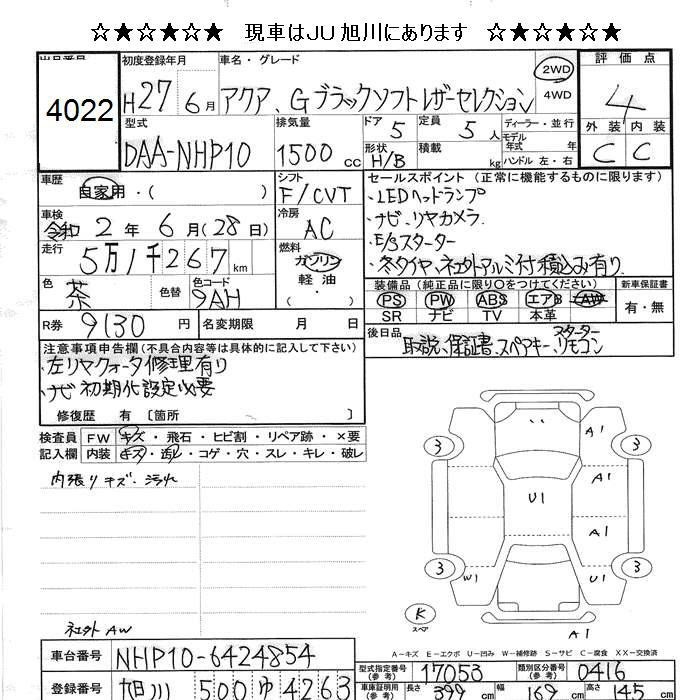 ☆★☆★☆★☆ 現車はJU旭川にあります ☆★☆★☆★☆
出品番号 初度登録年月 車名・グレード 2WD 評価点
4022 H27 6月 アクア、Gブラックソフトレザーセレクション 4WD 4
型式 排気量 ドア 5 定員 5人 ディーラー・並行 外装 内装
DAA-NHP10 1500cc 形状 H/B 積載 kg モデル年式 年式 ハンドル 左・右 C C
車歴 自家用・( ) シフト F/CVT セールスポイント (正常に機能するものに限ります)
車検 令和2年6月(28日) 冷房 AC ・LEDヘッドランプ
・ナビ・リヤカメラ.
走行 5万1千267km 燃料 ガソリン 軽油 ・E/Gスターター
・冬タイヤ、社外アルミ付積込み有り
色 茶 色替 色コード 9AH 装備品(純正品に限り○をつけてください) 新車保証書
PS PW ABS エアB AW 有・無
SR ナビ TV 本革
R券 9130円 名変期限 月 日 後日品 取説、保証書、スペアキー、スターターリモコン
注意事項申告欄(不具合内容等は具体的に記入して下さい)
・左リヤクォータ修理有り
・ナビ初期化設定必要
修復歴 有 〔箇所 〕
検査員 FW キズ・飛石・ヒビ割・リペア跡・×要
記入欄 内装 キズ・汚レ・コゲ・穴・スレ・キレ・破レ
内張りキズ・汚れ
A1
3 3
A1
U1
A1
3 3
W1 U1
K
スペア
A1
社外AW
A-キズ E-エクボ U-凹み W-補修跡 S-サビ C-腐食 XX-交換済
車台番号 NHP10-6424854 型式指定番号(参考) 17053 類別区分番号(参考) 0416
登録番号 旭川 500 ゆ 4263 車庫証明用(参考) 長さ 399cm 幅 169cm 高さ 145cm